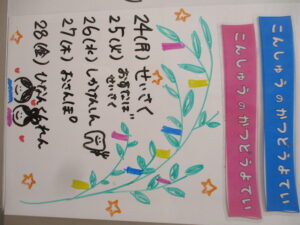 こんしゅうのかつどうよてい
こんしゅうのかつどうよてい
24(月) せいさく
25(火)
せいさく
26(水)
27(木) おさんぽ
28(金) ひなんくんれん